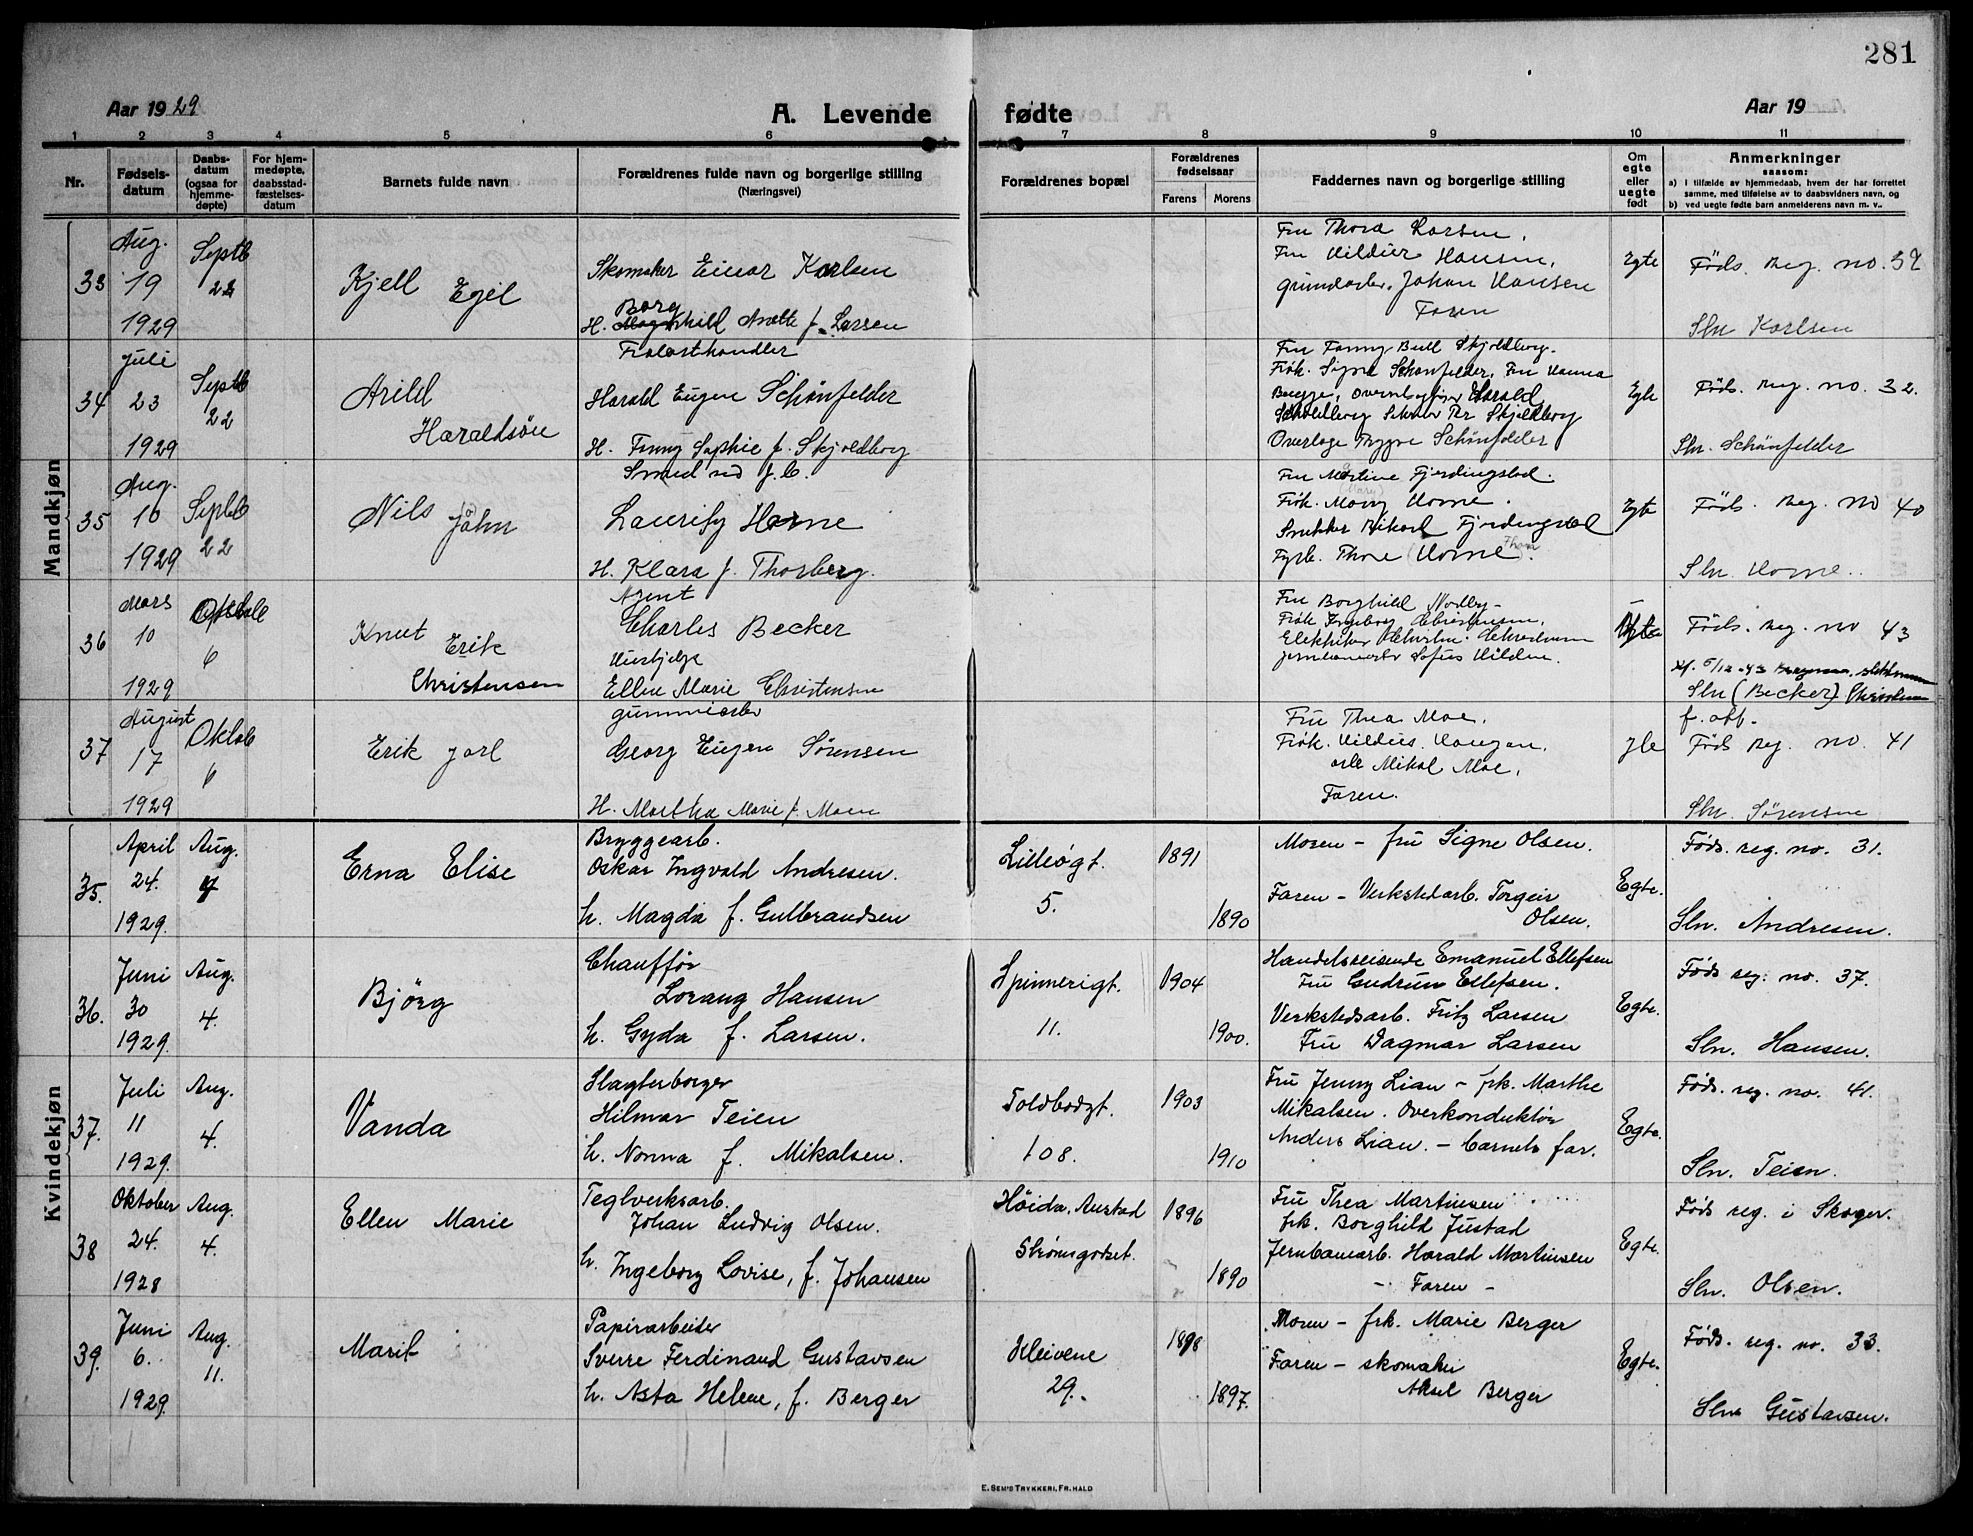 281
Aar 1929
A. Levende fødte
Aar 19
1 2 3 4 5 6 7 8 9 10 11
Nr.
Fødsels-
datum
Daabs-
datum
(ogsaa for
hjemme-
døpte)
For hjem-
medøpte,
daabsstad-
fæstelses-
datum
Barnets fulde navn
Forældrenes fulde navn og borgerlige stilling
(Næringsvei)
Forældrenes bopæl
Forældrenes
fødselsaar
Farens Morens
Faddernes navn og borgerlige stilling
Om
egte
eller
uegte
født
Anmerkninger
saasom:
a) I tilfælde av hjemmedaab, hvem der har forrettet
samme, med tilføielse av to daabsvidners navn, og
b) ved uegte fødte barn anmelderens navn m. v..
Mandkjøn
33
Aug.
19
1929
Septb
22
Kjell Egil
Skomaker Einar Karlsen
Borg
H. hild Anette f. Larsen
Fru Thora Larsen,
Fru Hansen,
Johan Hansen
Faren
Egte
Føds. Reg. no. 39
Sln Karlsen
34
Juli
23
1929
Septb
22
Arild
Haraldsön
Harald Eugen Schönfelder
H. Fanny Sophie f. Skjoldborg
Fru Fanny Bull Skjoldborg.
Frøk. Signe Schønfelder, Fru Hanna
Harald
Overlæge Trygve Schönfelder
Egte
Føds. Reg. no. 32.
Sln. Schönfelder
35
Aug.
10
1929
Septb
22
Nils John
Smed ved J.B.
Lauritz Horne
H. Klara f. Thorberg.
Fru Martine Fjerdingstad.
Frøk. Mary Horne.
Snekker Rikard
Fyrb. Thore Horne
Egte
Føds. Reg. No 40
Sln. Horne.
36
Mars
10
1929
6
Knut Erik
Christensen
Agent
Charles Becker
Hushjelp
Ellen Marie Christensen
Fru Borghild Nordby -
Frøk. Ingeborg Christensen,
Føds. reg. no 43
Sln (Becker) Christensen
37
August
17
1929
Oktob
6
Erik Jarl
gummiarb
Georg Eugen Sørensen
H. Martha Marie f. Moen
Fru Thea Moe,
Frøk. Hildus. Haugan.
arb Mikal Moe,
Faren.
f. att.
Føds Reg. no. 41
Sln. Sørensen
Kvindekjøn
35.
April
24.
1929.
Aug.
4
Erna Elise
Bryggearb.
Oskar Ingvald Andresen.
h. Magda f. Gulbrandsen
Lilleøgt.
5.
1891
1890
Moren - fru Signe Olsen.
Faren - Verkstedarb. Torgeir
Olsen.
Egte.
Føds. reg. no. 31.
Sln. Andresen.
36.
Juni
30
1929.
Aug.
4.
Bjórg
Chauffør
Lorang Hansen
h. Gyda f. Larsen.
Spinnerigt.
11.
1904
1900.
Handelsreisende Emanuel Ellefsen
Fru Gudrun Ellefsen.
Verkstedsarb. Fritz Larsen
Fru Dagmar Larsen
Egte.
Føds reg. no. 37.
Sln. Hansen.
37.
Juli
11
1929.
Aug.
4.
Vanda
Slagterborger
Hilmar Teien
h. Nonna f. Mikalsen.
Toldbodgt.
108.
1903
1910
Fru Jenny Lian - frk. Marthe
Mikalsen. Overkonduktør
Anders Lian. - barnets far.
Egte.
Føds. reg. no. 41.
Sln. Teien.
38
Oktober
24.
1928
Aug.
4.
Ellen Marie
Teglverksarb.
Johan Ludvig Olsen.
h. Ingeborg Lovise, f. Johansen
Höida, Austad
Strömsgodset.
1896
1890
Fru Thea Martinsen
frk. Borghild Justad
Jernbanearb. Harald Martinsen
- Faren -
Egte.
Føds reg. i Skoger.
Sln. Olsen.
39.
Juni
6.
1929.
Aug.
11.
Marit
Papirarbeider
Sverre Ferdinand Gustavsen
h. Asta Helene, f. Berger
Kleivene
29.
1898
1897.
Moren - frk. Marie Berger
Faren - skomaker
Aksel Berger
Egte.
Føds. reg. no. 33.
Sln Gustavsen.
E. SEM'S TRYKKERI, FR.HALD